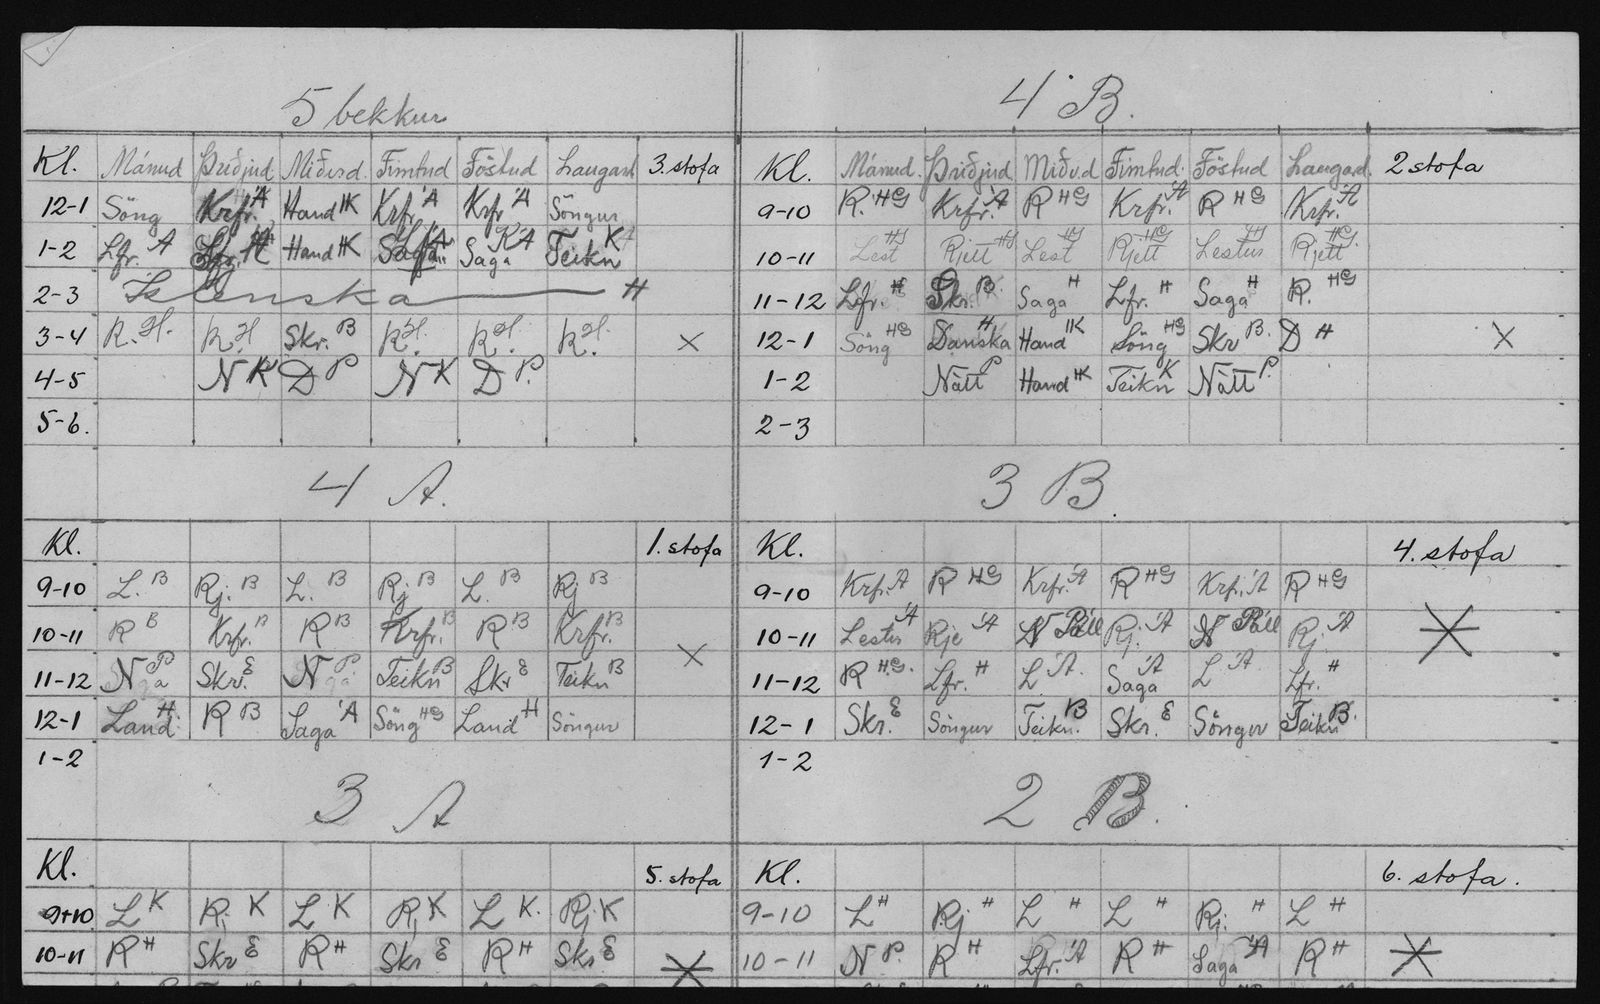 5 bekkur
Kl. Mánud Þriðjud Miðvd. Fimtud Föstud Laugard 3. stofa
12-1 Söng Krfr. Á Hand HK Krfr. Á Krfr. Á Söngur
1-2 Lfr. Á Hand HK Saga KÁ Teikn K
2-3 Íslenska H
3-4 R. H. R. H Skr. B R. H. R. H. R. H. ×
4-5 N K D P N K D P.
5-6.
4 A.
Kl. 1. stofa
9-10 L. B Rj. B L. B Rj B L. B Rj B
10-11 R B Krfr. B R B Krfr. B R B Krfr. B ×
11-12 N P Skr. E N P Teikn B Skr E Teikn B
12-1 Land H. R B Saga Á Söng HG Land H Söngur
1-2
3 A
Kl. 5. stofa
9+10 L K Rj K L K Rj K L K. Rj K
10-11 R H Skr E R H Skr E R H Skr E
4 B.
Kl. Mánud. Þriðjud. Miðv.d. Fimtud. Föstud Laugard. 2 stofa
9-10 R. HG Krfr. Á R HG Krfr. Á R HG Krfr. Á
10-11 Lest HG Rjett HG Lest HG Rjett HG Lestur HG Rjett HG.
11-12 Lfr. H Skr. B. Saga H Lfr. H Saga H R. HG
12-1 Söng HG Danska H Hand HK Söng HG Skr B. D H ×
1-2 Nátt P Hand HK Teikn K Nátt P.
2-3
3 B.
Kl. 4. stofa
9-10 Krfr. Á R HG Krfr. Á R HG Krfr. Á R HG
10-11 Lestur Á Rje Á N Páll Rj. Á N Páll Rj. Á
11-12 R HG. Lfr. H L Á. Saga Á L Á. Lfr. H
12-1 Skr. E Söngur Teikn. B Skr. E Söngur Teikn B.
1-2
2 B.
Kl. 6. stofa.
9-10 L H Rj H L H L H Rj. H L H
10-11 N P. R H Lfr. Á R H Saga Á R H